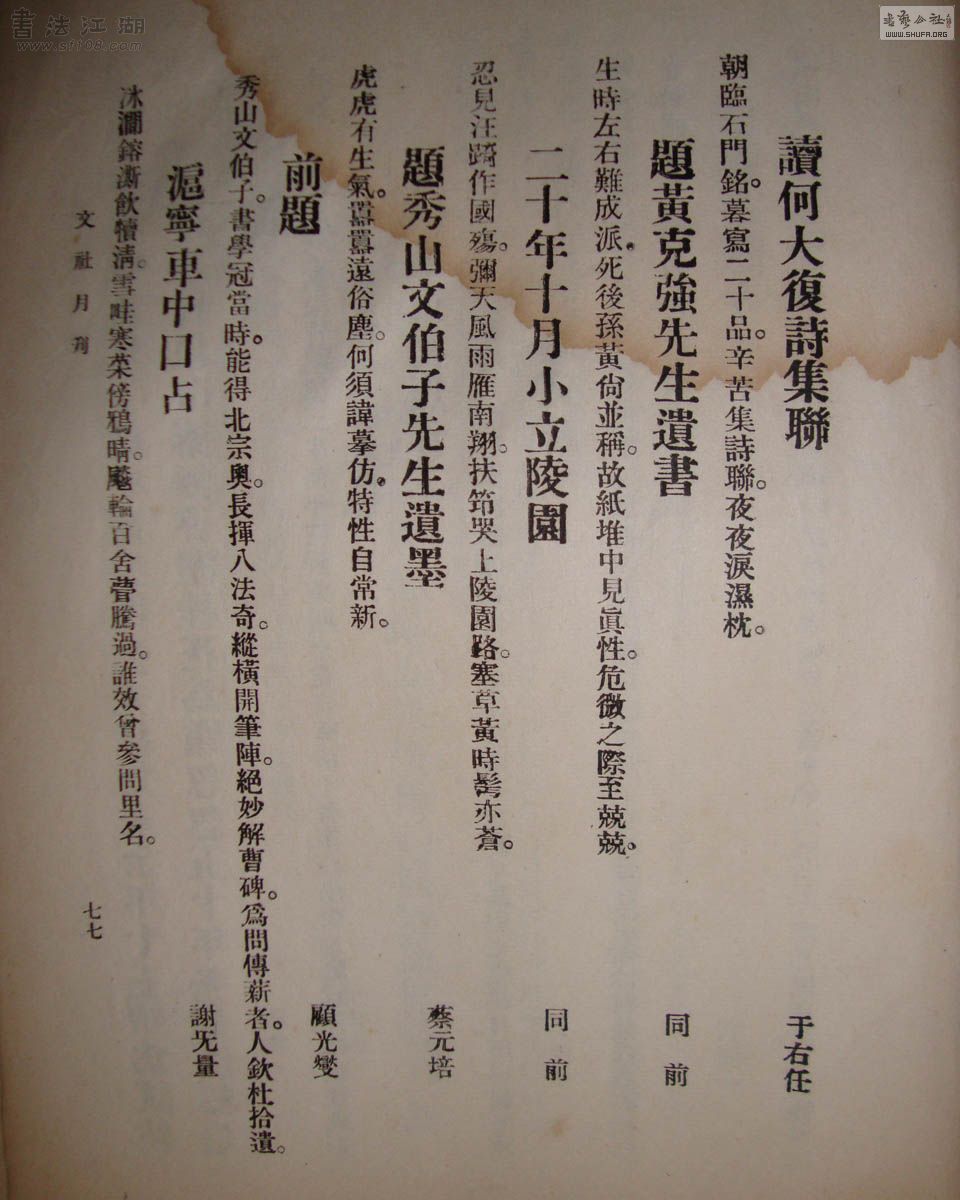 書法江湖
www.sf108.com
書藝公社
WWW.SHUFA.ORG
讀何大復詩集聯 于右任
朝臨石門銘。暮寫二十品。辛苦集詩聯。夜夜淚濕枕。
題黃克強先生遺書 同前
生時左右難成派。死後孫黃尙並稱。故紙堆中見眞性。危微之際至兢兢。
二十年十月小立陵園 同前
忍見汪踦作國殤。彌天風雨雁南翔。扶筇哭上陵園路。塞草黃時髩亦蒼。
題秀山文伯子先生遺墨 蔡元培
虎虎有生氣。囂囂遠俗塵。何須諱摹仿。特性自常新。
前題 顧光燮
秀山文伯子。書學冠當時。能得北宗奧。長揮八法奇。縱橫開筆陣。絕妙解曹碑。爲問傳薪者。人欽杜拾遺。
滬寧車中口占 謝旡量
冰瀾鎔澌飲犢淸。雪畦寒菜傍鴉晴。飈輪百舍瞢騰過。誰效曾參問里名。
文社月刋
七七